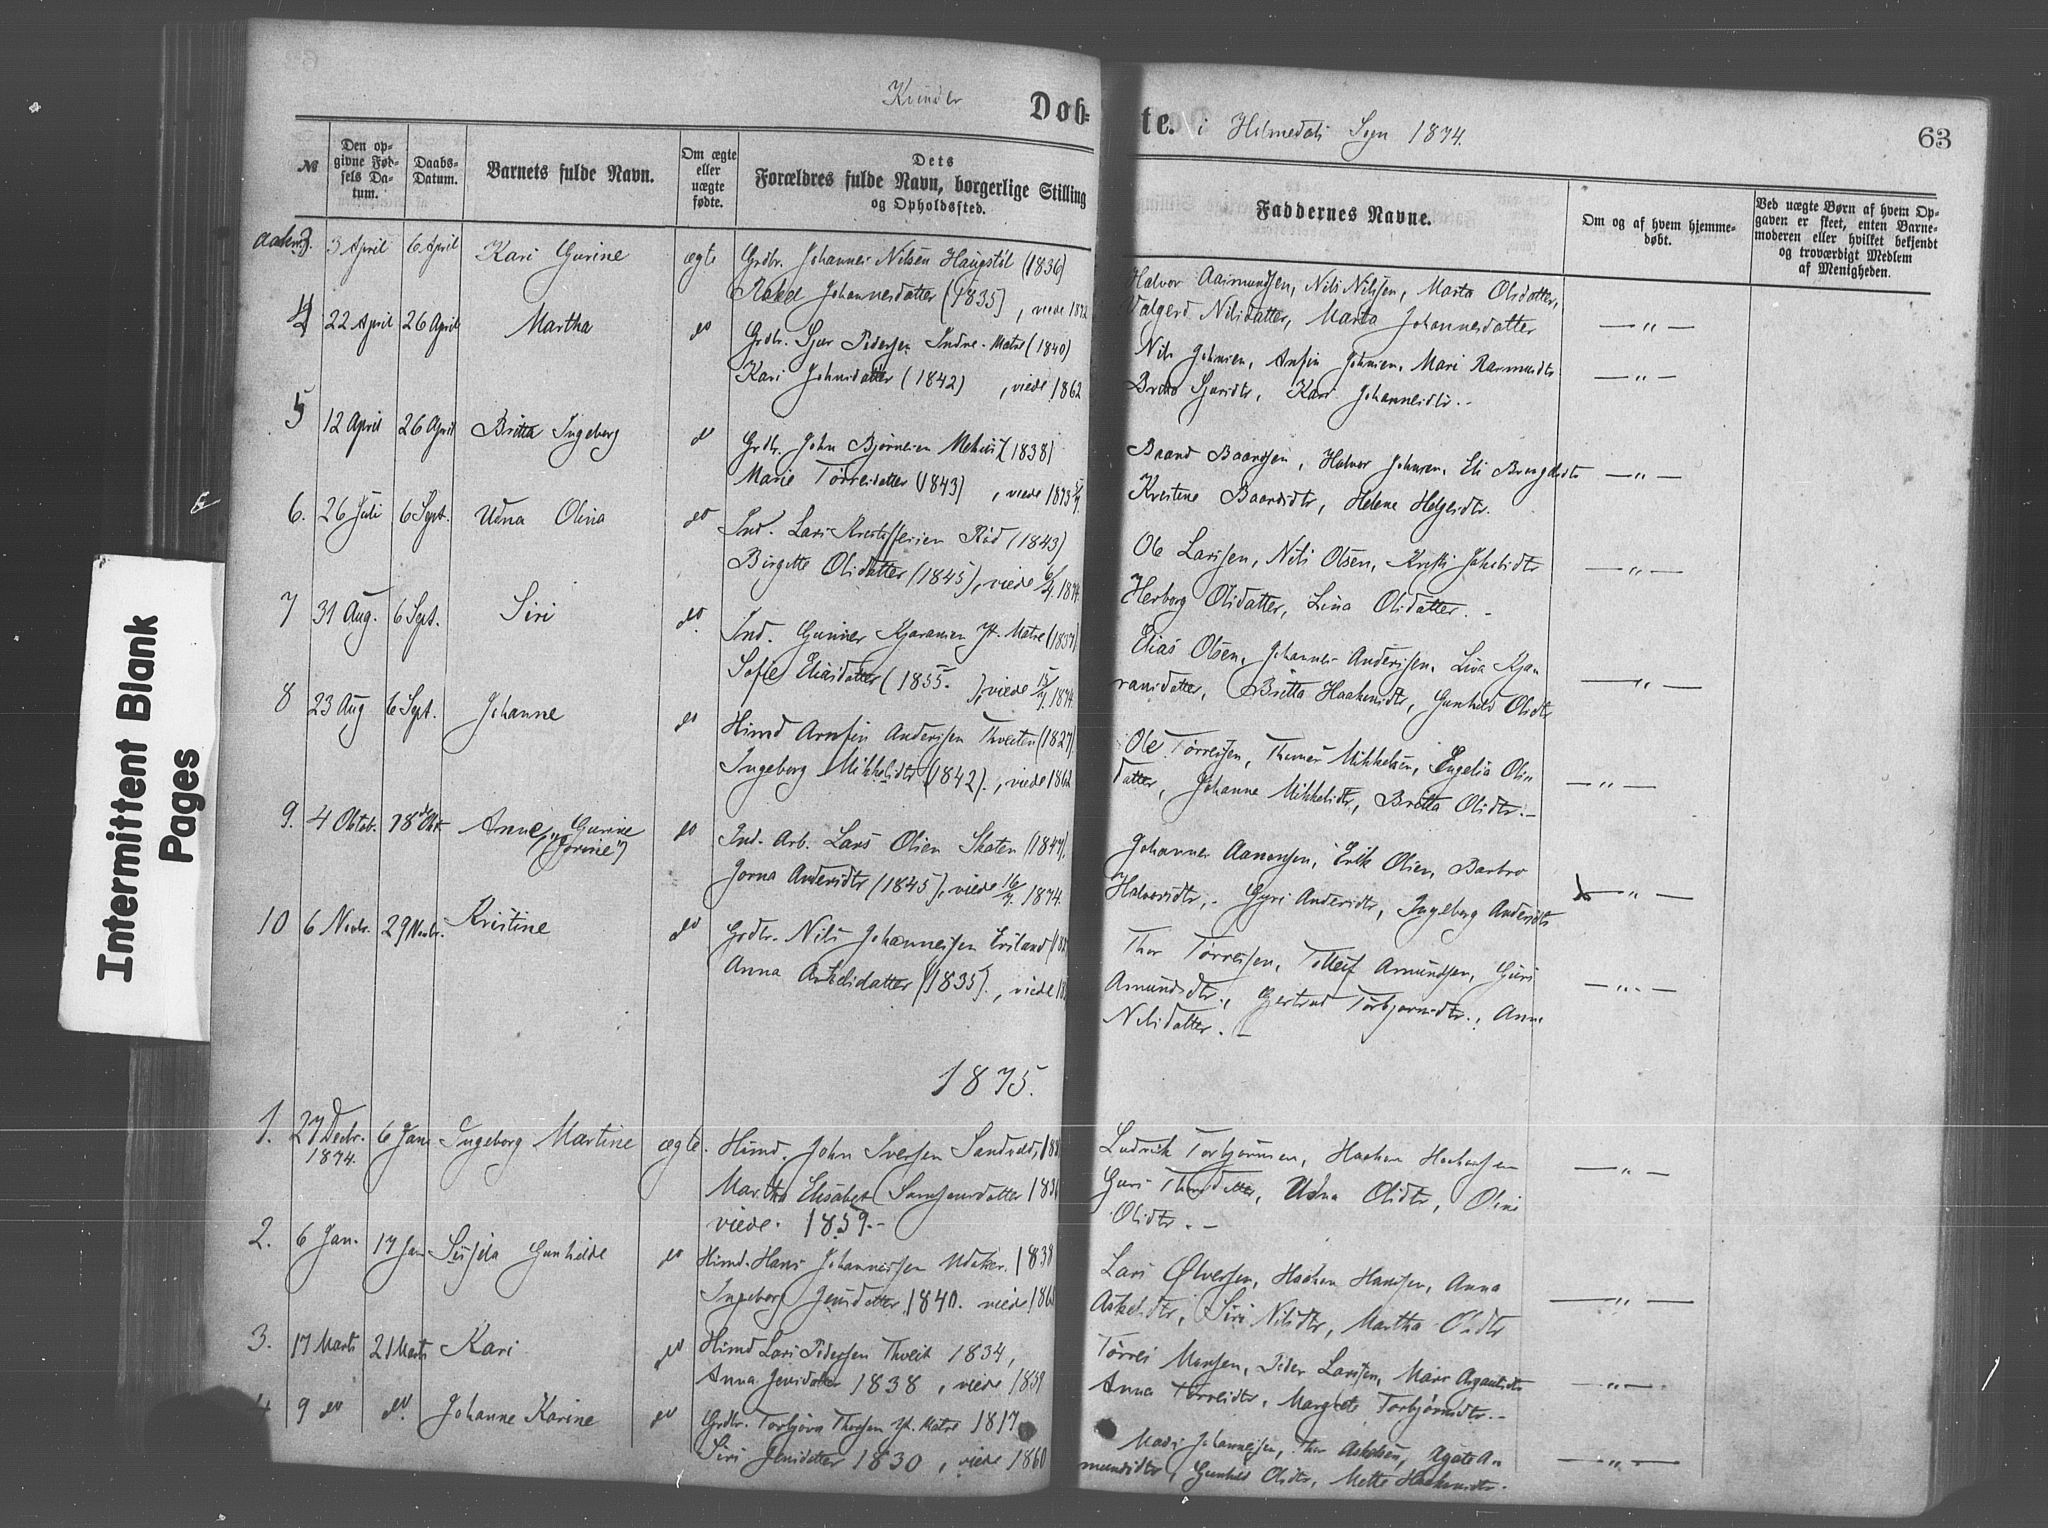 Kvinder Døbte. i Holmedals Sogn 1874.
63
№
Den opgivne Fødsels Datum.
Daabs-Datum.
Barnets fulde Navn.
Om ægte eller uægte fødte.
Dets Forældres fulde Navn, borgerlige Stilling og Opholdssted.
Faddernes Navne.
Om og af hvem hjemmedøbt.
Ved uægte Børn af hvem Opgaven er skeet, enten Barnemoderen eller hvilket bekjendt og troværdigt Medlem af Menigheden.
3. 3 April 6 April Kari Gurine ægte Grdbr. Johannes Nilsen Haugstøl (1836)
Johannesdatter (1835), viede 1872
Halvor Aamundsen, Nils Nilssen, Marta Olsdatter,
Valgerd Nilsdatter, Marta Johannesdatter — " —
4 22 April 26 April Martha do Grdbr. Sjur Pedersen Indre-Matre (1840)
Kari Johnsdatter (1842), viede 1862
Nils Johnsen, Anfin Johnsen, Mari Rasmusdtr
Britta Sjursdtr, Kari Johannesdtr. — " —
5 12 April 26 April Britta Ingeborg do Grdbr. John Bjørnsen Mehus (1838)
Marie Tørresdatter (1843), viede 1873
Baard Baardsen, Halvor Johnsen, Eli
Kristine Baardsdtr, Helene Helgesdtr. — " —
6. 26 Juli 6 Sept. Udna Olina do Ind. Lars Kristoffersen Rød (1843)
Birgitte Olsdatter (1845), viede 6/4 1874.
Ole Larssen, Nils Olsen, Kristi
Herborg Olsdatter, Lina Olsdatter. — " —
7 31 Aug. 6 Sept. Siri do. Ind. Gunner Kjaransen Y. Matre (1837)
Sofie Eliasdatter (1855.), viede 15/4 1874.
Elias Olsen, Johannes Anderssen, Lisa Kja-
ransdatter, Britta Haakensdtr, Gunhild Olsdtr — " —
8 23 Aug 6 Sept. Johanne do Husmd Arnfin Anderssen Thveiten (1827)
Ingeborg Mikkelsdtr (1842)., viede 1862
Ole Tørressen, Thomas Mikkelsen, Engelia Ols-
datter, Johanne Mikkelsdtr, Britta Olsdtr. — " —
9. 4 Oktob. 18de Okt. Anne Gurine
("Jorine") do Ind. Arb. Lars Olsen Skaten (1847).
Jorna Andersdtr (1845), viede 16/4 1874.
Johannes Aanensen, Erik Olsen, Barbro
Halvorsdtr, Guri Andersdtr, Ingeborg Andersdtr — " —
10 6 Novbr. 29 Novbr. Kristine do Grdbr. Nils Johannessen Eiland
Anna Askelsdatter (1835)., viede
Thor Tørressen, Tolleif Amundsen, Guri
Amundsdtr., Gertrud Torbjørnsdtr., Anna
Nilsdatter. — " —
1875.
1. 27 Decbr. 1874. 6 Jan. Ingeborg Martine ægte. Husmd. John Iversen Sandvold,
Martha Elisabet Samsonsdatter
viede. 1859.
Ludvik Torbjørnsen, Haaken Haakensen
Guri Thorsdatter, Udna Olsdtr,
Olsdtr. — " —
2. 6 Jan. 17 Jan Gunhilde do Husmd. Hans Johannessen Udaker. 1838
Ingeborg Jensdatter 1840. viede
Lars Ølversen, Haaken Hanssen, Anna
Askelsdtr, Siri Nilsdtr, Martha Olsdtr — " —
3. 17 Marts 21 Marts Kari do Husmd Lars Pedersen Thveit 1834,
Anna Jensdatter 1838, viede 1859
Tørres Monsen, Peder Larssen, Mari
Anna Tørresdtr, Margrete Torbjørnsdtr. — " —
4 9 do do. Johanne Karine do Grdbr. Torbjørn Thorsen Y. Matre 1817
Siri Jensdatter 1830, viede 1860
Mads Johannessen, Thor Askelsen, Agate A-
mundsdtr, Gunhild Olsdtr, Mette Haakensdtr. — " —
Intermittent Blank
Pages